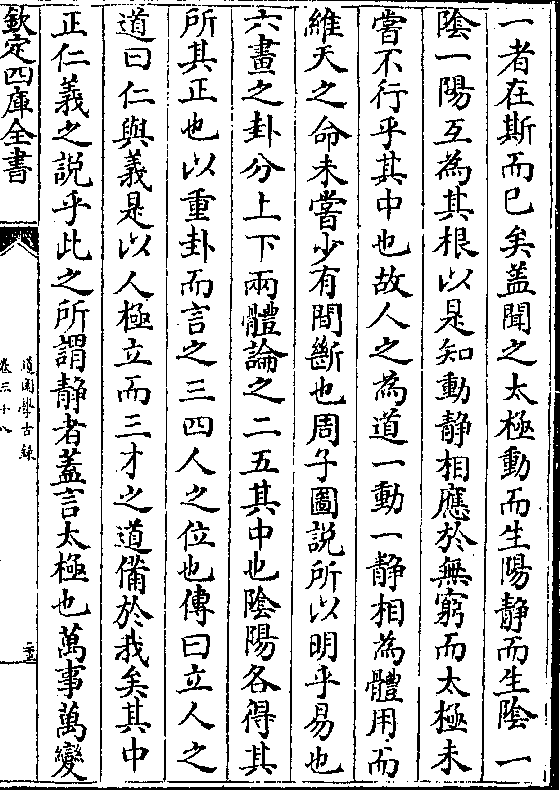 一者在斯而已矣蓋聞之太極動而生陽静而生陰一
陰一陽互為其根以是知動静相應於無窮而太極未
嘗不行乎其中也故人之為道一動一静相為體用而
維天之命未嘗少有間斷也周子圖說所以明乎易也
六畫之卦分上下兩體論之二五其中也陰陽各得其
所其正也以重卦而言之三四人之位也傳曰立人之
道曰仁與義是以人極立而三才之道備於我矣其中
正仁義之說乎此之所謂静者蓋言太極也萬事萬變
欽定四庫全書
道園學古錄
卷三十八